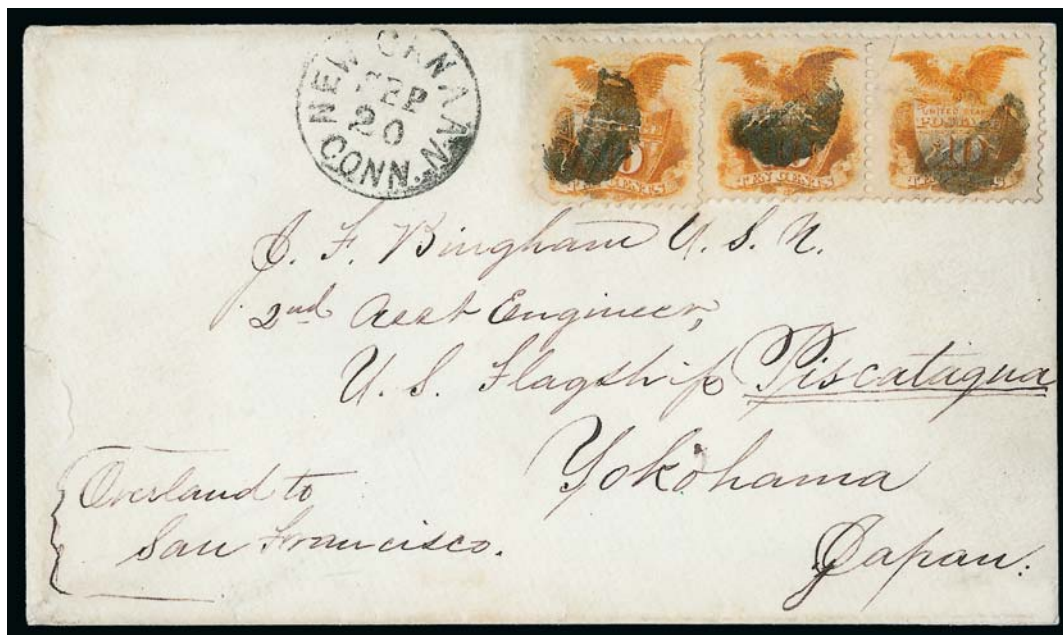 NEW CANAAN
SEP
20
CONN.
UNITED STATES
POSTAGE
10
J. F. Bingham U. S. N.
2nd Asst Engineer,
U. S. Flagship Piscataqua
Yokohama
Japan.
Overland to
San Francisco.